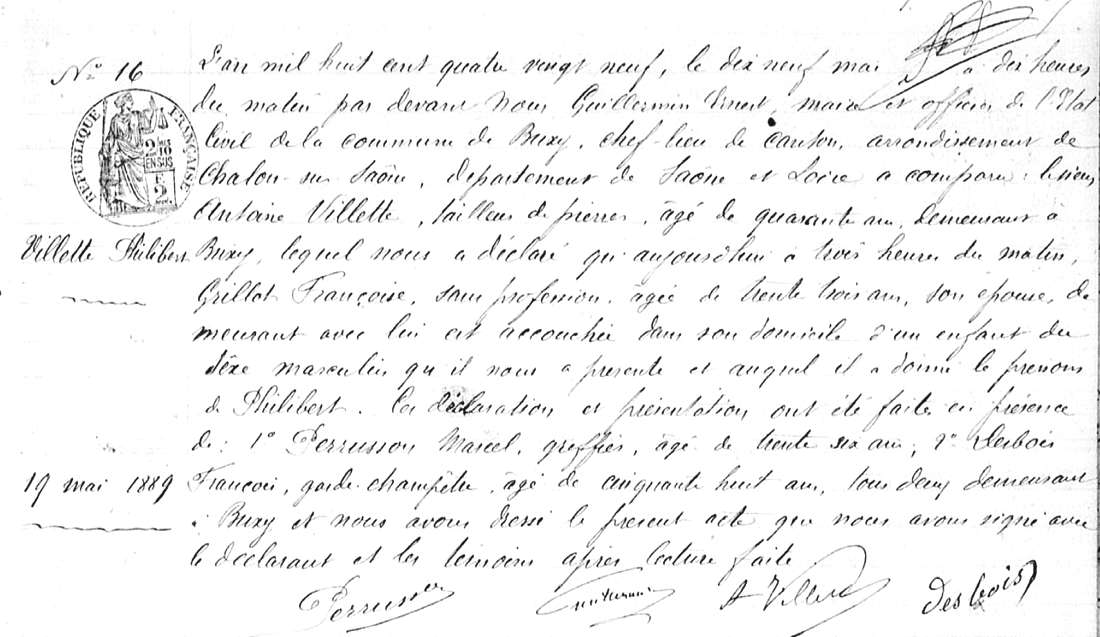 N° 16
L'an mil huit cent quatre vingt neuf, le dix neuf mai à dix heures
du matin par devant Nous Guillermin Ernest, maire et officier de l'Etat
Civil de la commune de Buxy, chef-lieu de canton, arrondissement de
Chalon sur Saône, département de Saône et Loire a comparu : le sieur
Antoine Villette, tailleur de pierres, âgé de quarante ans, demeurant à
Villette Philibert
Buxy, lequel nous a déclaré qu'aujourd'hui à trois heures du matin,
Grillot Françoise, sans profession, âgée de trente trois ans, son épouse, de
meurant avec lui est accouchée dans son domicile d'un enfant du
sexe masculin qu'il nous a présenté et auquel il a donné le prénoms
de Philibert. Ces déclaration et présentation ont été faites en présence
de : 1° Perrusson Marcel, greffier, âgé de trente six ans ; 2° Desbois
19 mai 1889
François, garde-champêtre, âgé de cinquante huit ans, tous deux demeurant
à Buxy et nous avons dressé le présent acte que nous avons signé avec
le déclarant et les témoins après lecture faite
Perrusson Guillermin A Villette Desbois
RÉPUBLIQUE FRANÇAISE
2/10 EN SUS